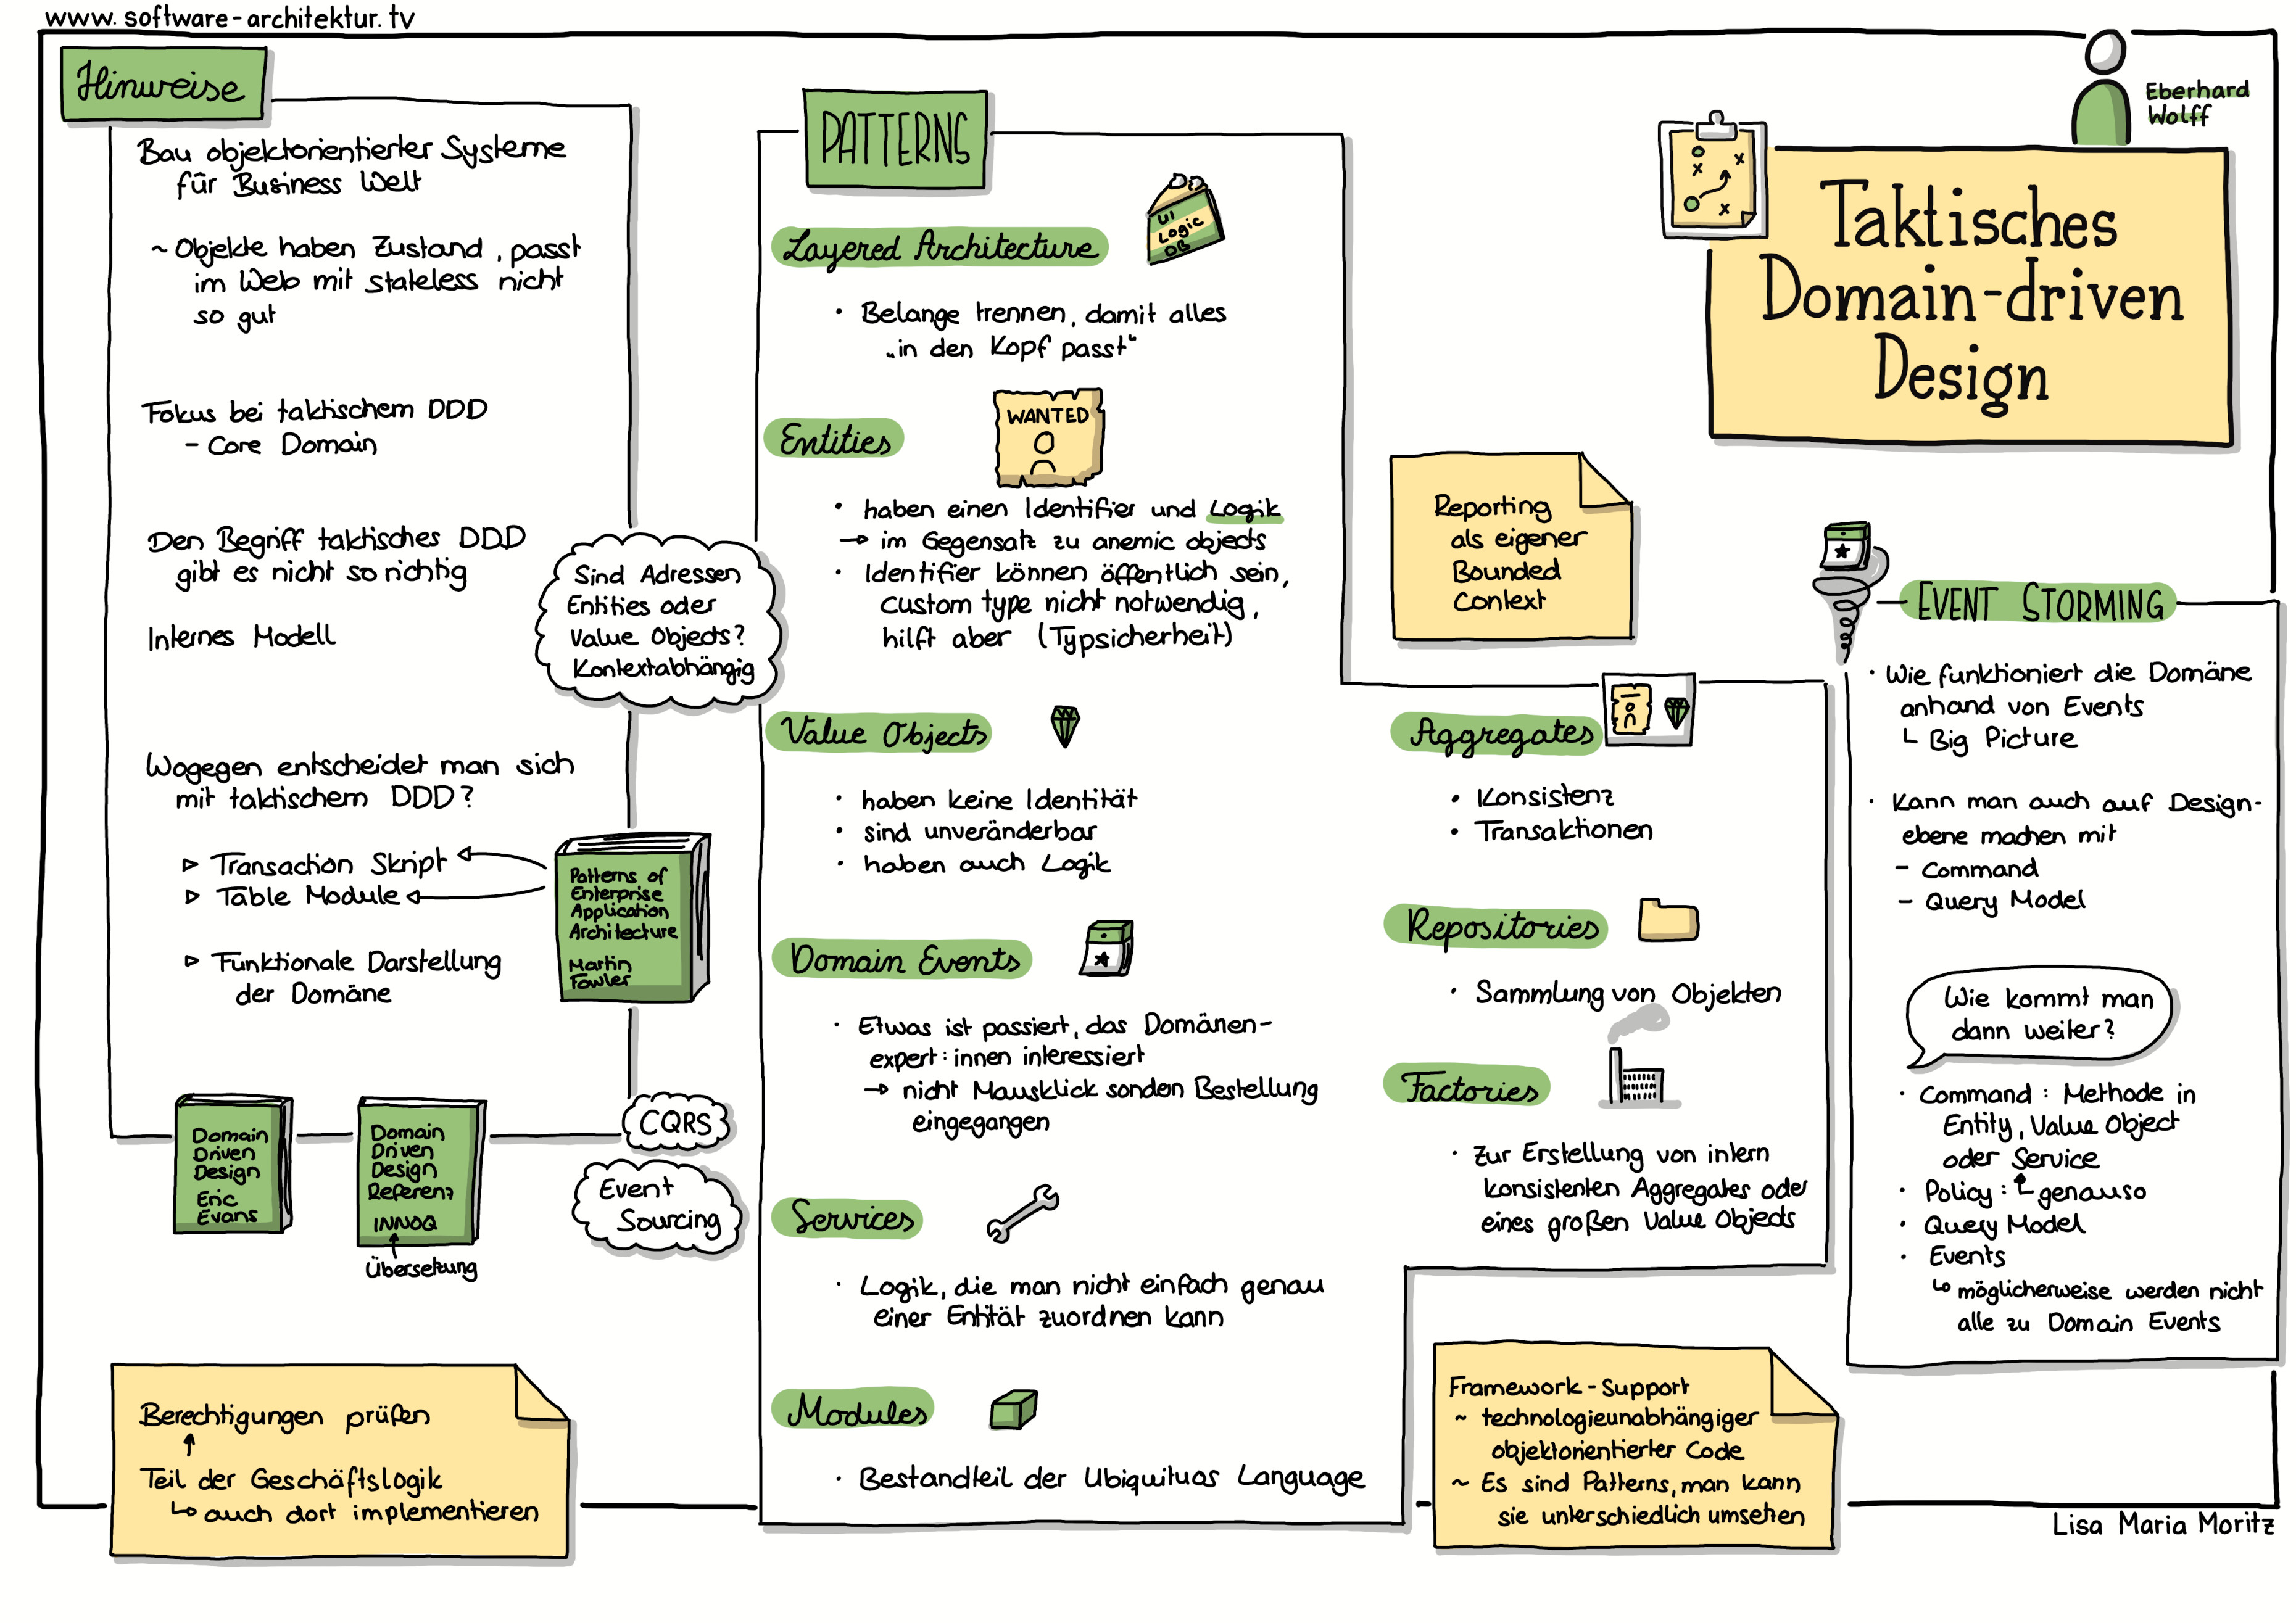 www.software-architektur.tv
Eberhard
Wolff
Taktisches
Domain-driven
Design
Hinweise
Bau objektorientierter Systeme
für Business Welt
~ Objekte haben Zustand, passt
im Web mit stateless nicht
so gut
Fokus bei taktischem DDD
- Core Domain
Den Begriff taktisches DDD
gibt es nicht so richtig
Internes Modell
Wogegen entscheidet man sich
mit taktischem DDD?
▷ Transaction Skript
▷ Table Module
▷ Funktionale Darstellung
der Domäne
Patterns of
Enterprise
Application
Architecture
Martin
Fowler
Sind Adressen
Entities oder
Value Objects?
Kontextabhängig
Domain
Driven
Design
Eric
Evans
Domain
Driven
Design
Referenz
INNOQ
Übersetzung
CQRS
Event
Sourcing
Berechtigungen prüfen
↑
Teil der Geschäftslogik
↳ auch dort implementieren
PATTERNS
Layered Architecture
UI
Logic
DB
· Belange trennen, damit alles
„in den Kopf passt"
Entities
WANTED
· haben einen Identifier und Logik
→ im Gegensatz zu anemic objects
· Identifier können öffentlich sein,
custom type nicht notwendig,
hilft aber (Typsicherheit)
Value Objects
· haben keine Identität
· sind unveränderbar
· haben auch Logik
Domain Events
· Etwas ist passiert, das Domänen-
expert:innen interessiert
→ nicht Mausklick sondern Bestellung
eingegangen
Services
· Logik, die man nicht einfach genau
einer Entität zuordnen kann
Modules
· Bestandteil der Ubiquituos Language
Reporting
als eigener
Bounded
Context
Aggregates
· Konsistenz
· Transaktionen
Repositories
· Sammlung von Objekten
Factories
· Zur Erstellung von intern
konsistenten Aggregates oder
eines großen Value Objects
Framework-Support
~ technologieunabhängiger
objektorientierter Code
~ Es sind Patterns, man kann
sie unterschiedlich umsetzen
EVENT STORMING
· Wie funktioniert die Domäne
anhand von Events
└ Big Picture
· Kann man auch auf Design-
ebene machen mit
- Command
- Query Model
Wie kommt man
dann weiter?
· Command: Methode in
Entity, Value Object
oder Service
· Policy: genauso
· Query Model
· Events
↳ möglicherweise werden nicht
alle zu Domain Events
Lisa Maria Moritz